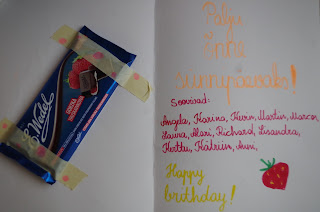 E. Wedel
Palju
Õnne
sünnipäevaks!
Soovivad:
Angela, Karina, Kevin, Martin, Marcor,
Laura, Mari, Richard, Lisandra,
Kerttu, Kätriin, Auri,
Happy
birthday!